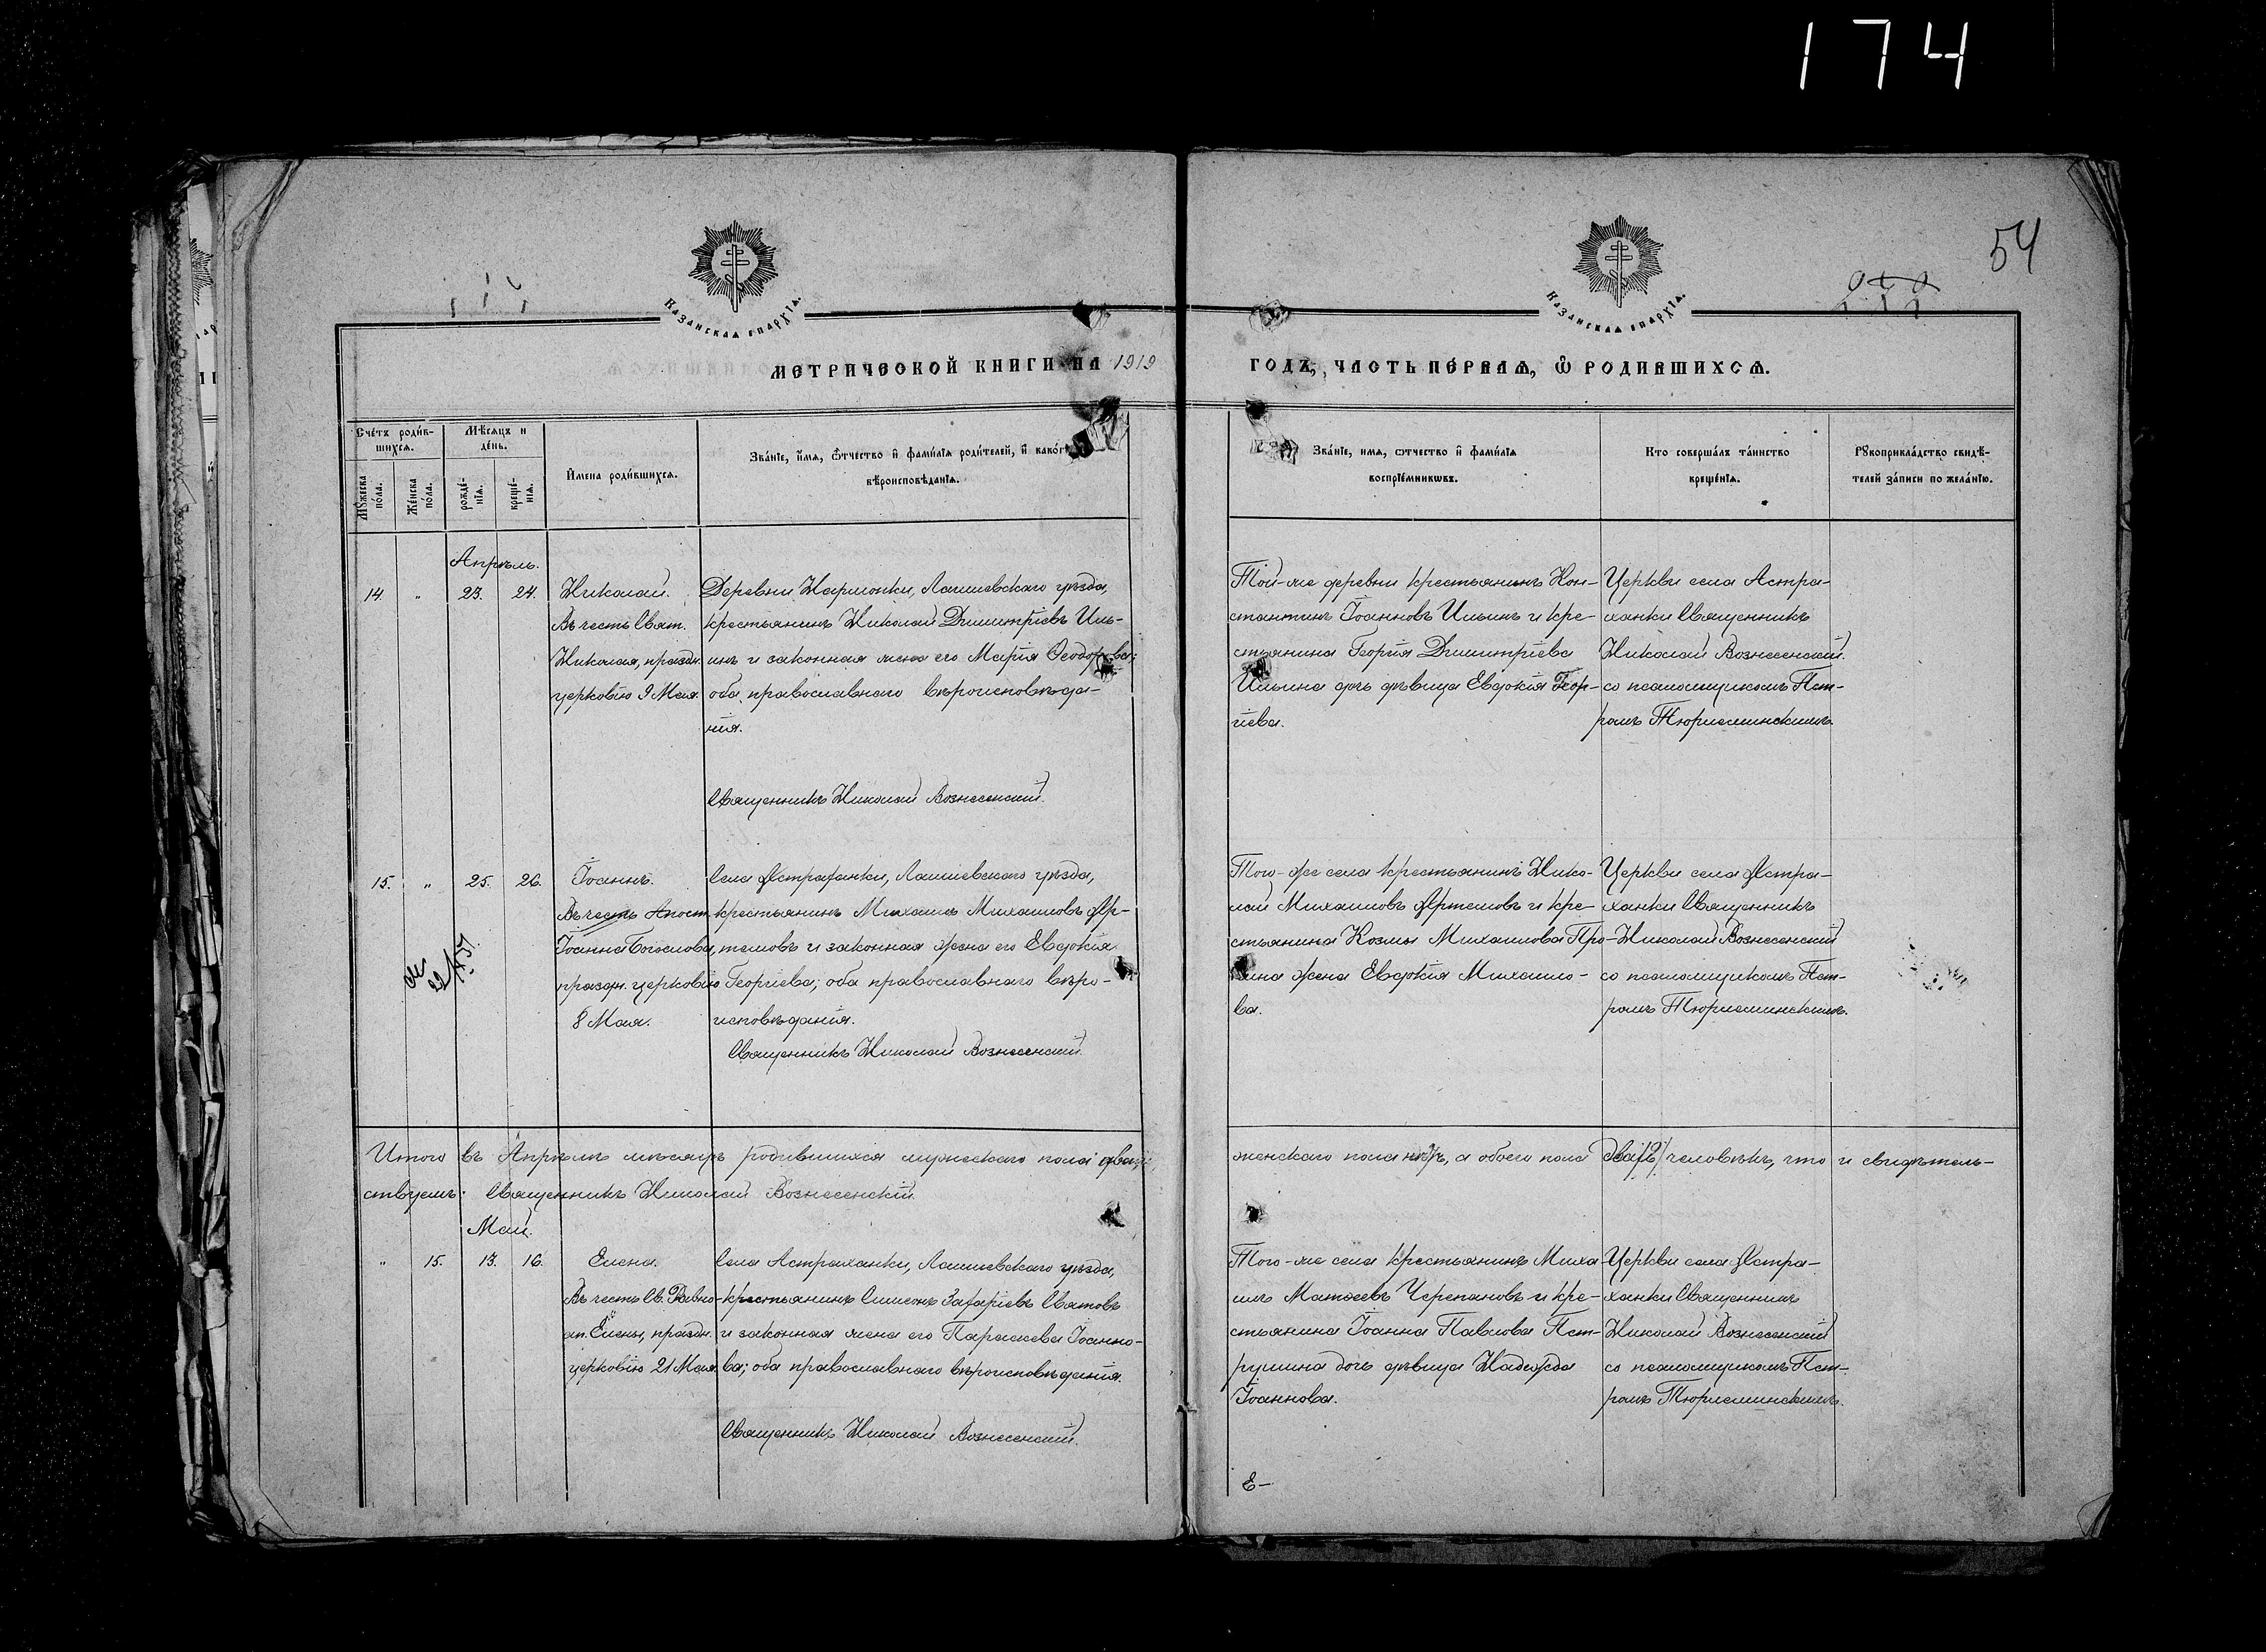 174
54
Казанская епархїа.
Казанская епархїа.
МЕТРИЧЕСКОЙ КНИГИ НА 1919
ГОДЪ, ЧАСТЬ ПЕРВАЯ, Ѡ РОДИВШИХСЯ.
Счетъ родив-
шихся.
Мѣсяцъ и
день.
Мужеска
пола.
Женска
пола.
рожде-
нія.
креще-
нія.
Имена родившихся.
Званіе, имя, отчество и фамилія родителей, и какого
вѣроисповѣданія.
Званіе, имя, отчество и фамилія
воспріемниковъ.
Кто совершалъ таинство
крещенія.
Рукоприкладство свидѣ-
телей записи по желанію.
Апрѣль.
14. " 23. 24.
Николай.
Въ честь Свят.
Николая, праздн.
церковію 9 Мая.
Деревни Нармонки, Лаишевскаго уѣзда,
крестьянинъ Николай Димитріевъ Иль-
инъ и законная жена его Марія Ѳеодорова;
оба православнаго вѣроисповѣда-
нія.
Священникъ Николай Вознесенскій.
Той-же деревни крестьянинъ Кон-
стантинъ Іоанновъ Ильинъ и кре-
стьянина Георгія Димитріева
Ильина дочь дѣвица Евдокія Геор-
гіева.
Церкви села Астра-
ханки Священникъ
Николай Вознесенскій.
со псаломщикомъ Пет-
ромъ Тюрнеминскимъ.
15. " 25. 26.
Іоаннъ.
Въ честь Апост.
Іоанна Богослова,
праздн. церковію
8 Мая.
Села Астраханки, Лаишевскаго уѣзда,
крестьянинъ Михаилъ Михаиловъ Ар-
темовъ и законная жена его Евдокія
Георгіева; оба православнаго вѣро-
исповѣданія.
Священникъ Николай Вознесенскій.
Того-же села крестьянинъ Нико-
лай Михаиловъ Артемовъ и кре-
стьянина Козмы Михаилова Про-
кина жена Евдокія Михаило-
ва.
Церкви села Астра-
ханки Священникъ
Николай Вознесенскій
со псаломщикомъ Пет-
ромъ Тюрнеминскимъ.
Итого въ Апрѣлѣ мѣсяцѣ родившихся мужескаго пола два /2/
женскаго пола нѣтъ, а обоего пола два /2/ человѣкъ, что и свидѣтель-
ствуемъ: Священникъ Николай Вознесенскій.
Май.
" 15. 13. 16.
Елена.
Въ честь Св. Равно-
ап. Елены, праздн.
церковію 21 Мая.
Села Астраханки, Лаишевскаго уѣзда,
крестьянинъ Симеонъ Захаріевъ Святовъ
и законная жена его Параскева Іоанно-
ва; оба православнаго вѣроисповѣданія.
Священникъ Николай Вознесенскій.
Того-же села крестьянинъ Миха
илъ Матѳеевъ Черепановъ и кре-
стьянина Іоанна Павлова Пет-
рушина дочь дѣвица Надежда
Іоаннова.
Церкви села Астра-
ханки Священникъ
Николай Вознесенскій
со псаломщикомъ Пет-
ромъ Тюрнеминскимъ.
Е-